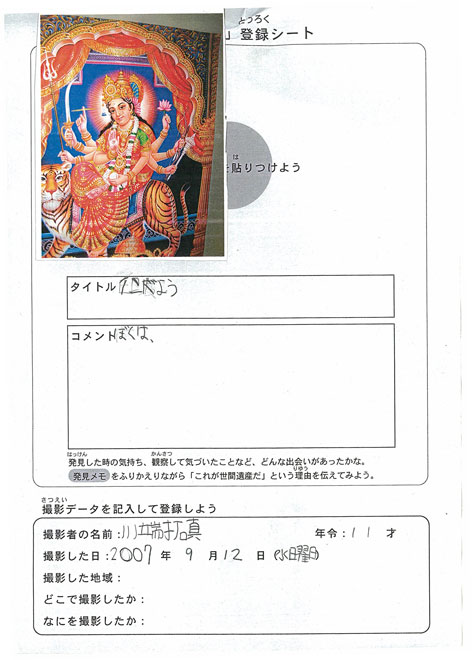 とうろく
」登録シート
は
を貼りつけよう
タイトル
コメント ぼくは、
はっけん かんさつ
発見した時の気持ち、観察して気づいたことなど、どんな出会いがあったかな。
りゆう
発見メモをふりかえりながら「これが世間遺産だ」という理由を伝えてみよう。
さつえい
撮影データを記入して登録しよう
撮影者の名前：川端拓真 年令：11 才
撮影した日：2007 年 9 月 12 日（水曜日）
撮影した地域：
どこで撮影したか：
なにを撮影したか：